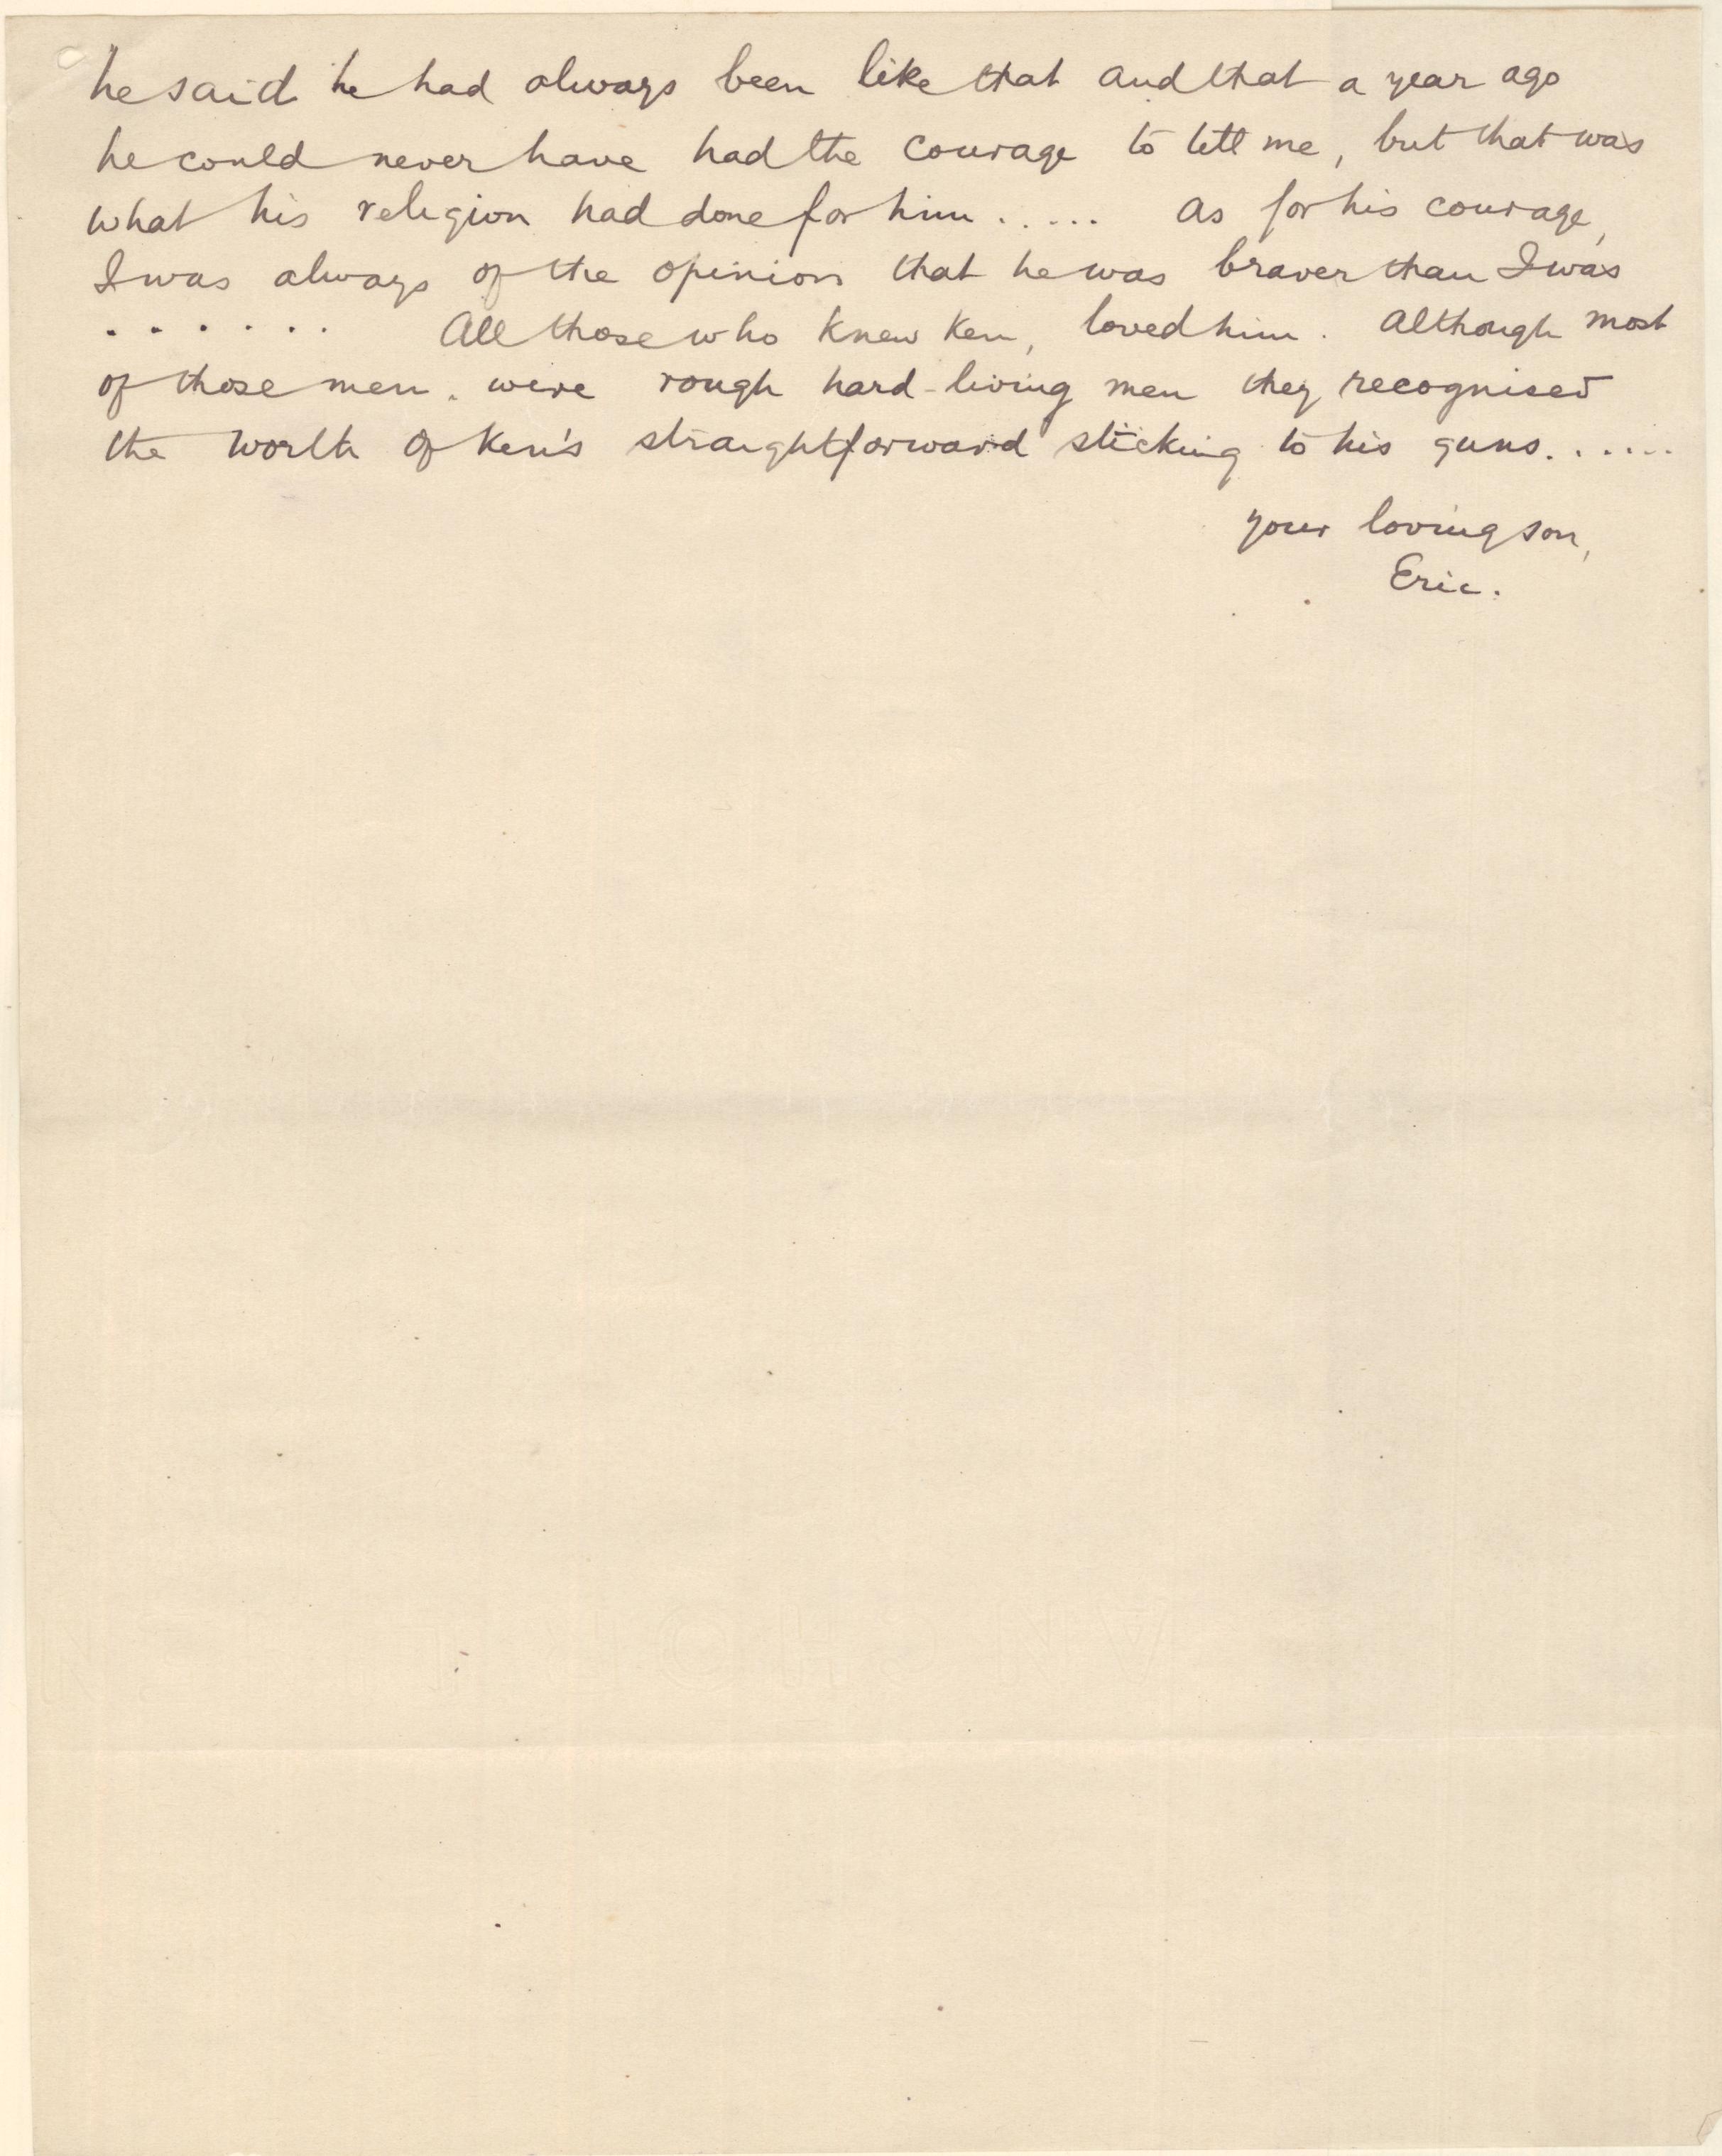 he said he had always been like that and that a year ago
he could never have had the courage to tell me, but that was
what his religion had done for him ..... As for his courage,
I was always of the opinion that he was braver than I was
...... All those who knew Ken, loved him. Although most
of those men. were rough hard-living men they recognised
the worth of Ken's straightforward sticking to his guns......
your loving son,
Eric.